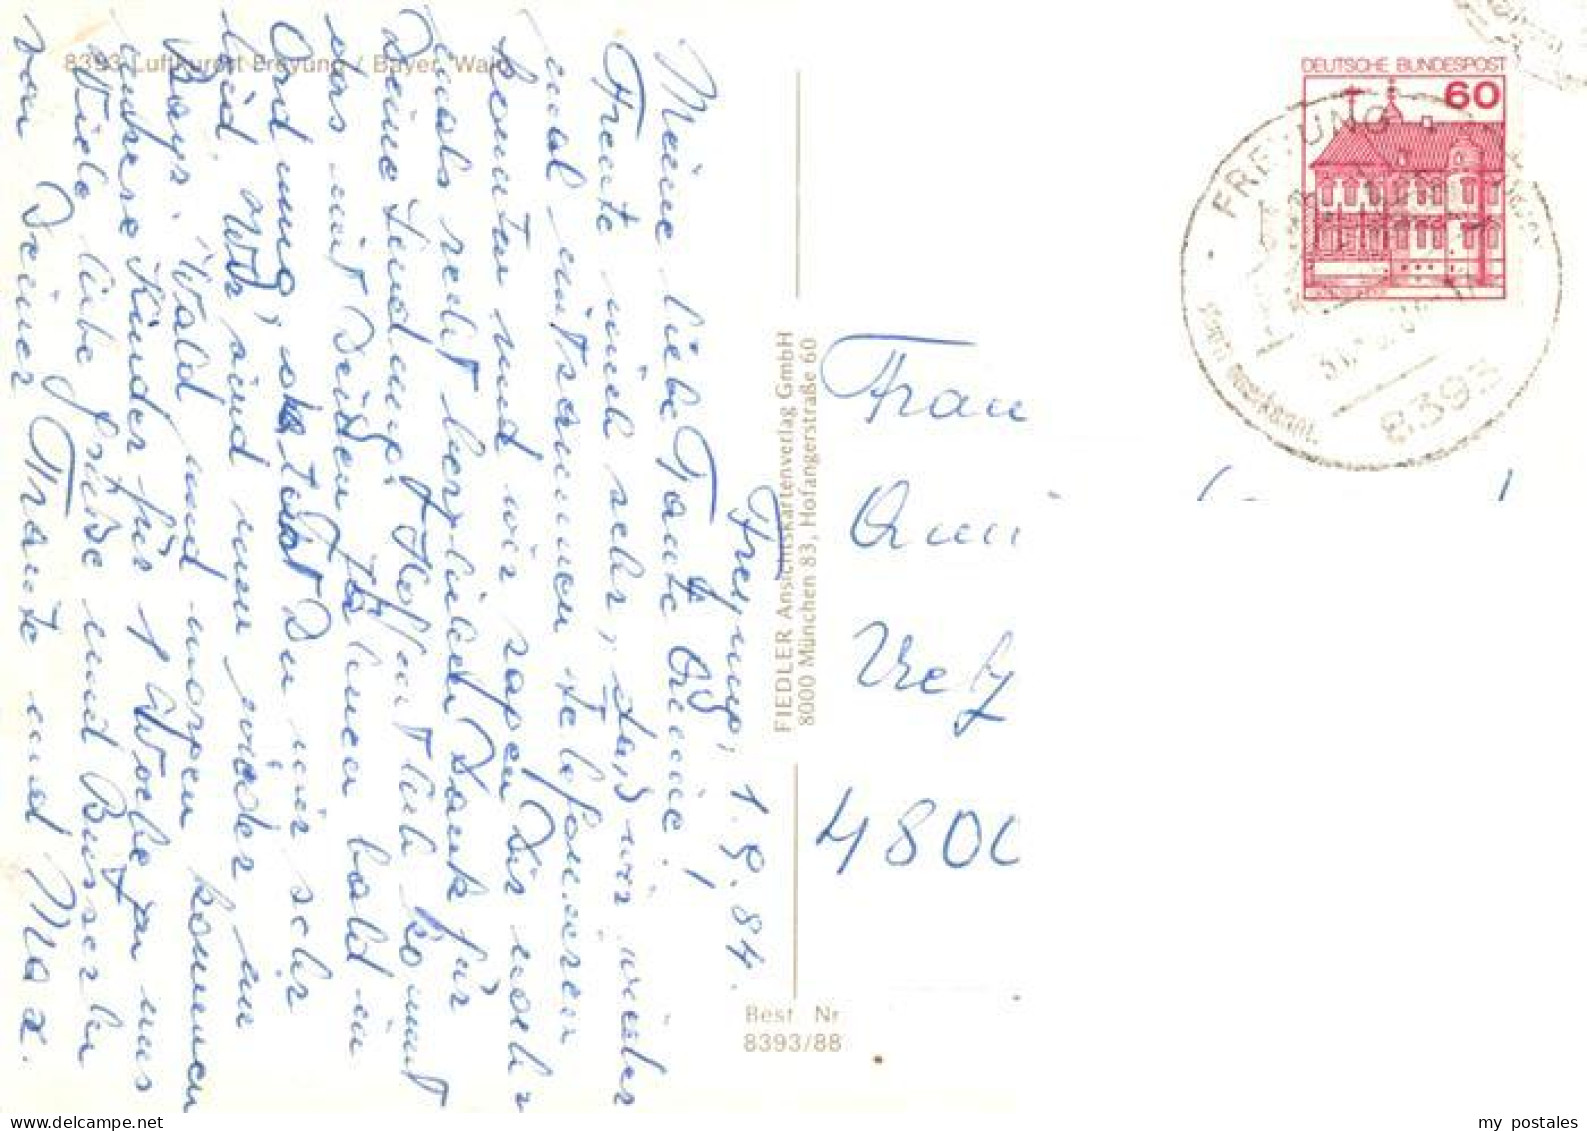 8393 Luftkurort Freyung / Bayer. Wald
Freyung, 1.9.84.
Meine liebe Tante Ännie!
Freute mich sehr, daß wir wieder
mal mitsammen telefonieren
konnten und wir sagen Dir noch
mals recht herzlichen Dank für
Deine Sendung. Hoffentlich kommt
das mit Deißen Zähnen bald in
Ordnung, tust Du mir sehr
leid. Wir sind nun wieder im
Bayr. Wald und morgen kommen
unsere Kinder für 1 Woche zu uns
Viele liebe Grüße und Busserln
von Deiner Traute und Max.
FIEDLER Ansichtskartenverlag GmbH
8000 München 83, Hofangerstraße 60
Best. Nr.
8393/88
DEUTSCHE BUNDESPOST
60
FREYUNG
8393
Frau
480
my postales